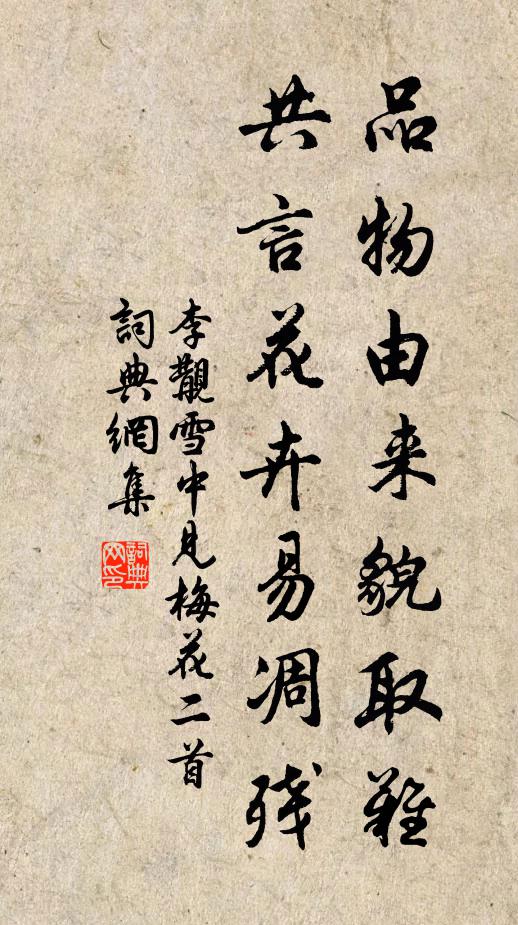 品物由来貌取難
共言花卉易凋残
李覯雪中見梅花二首
詞典網集
詞典网印